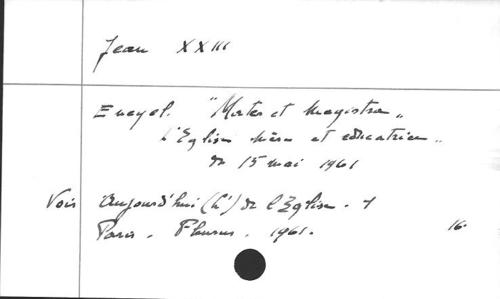 Jean XXIII
Encycl. "Mater et magistra"
L'Eglise mère et educatrice"
du 15 mai 1961
Voir Aujourd'hui (L') de l'Eglise. 1
Paris. Fleurus. 1961. 16.